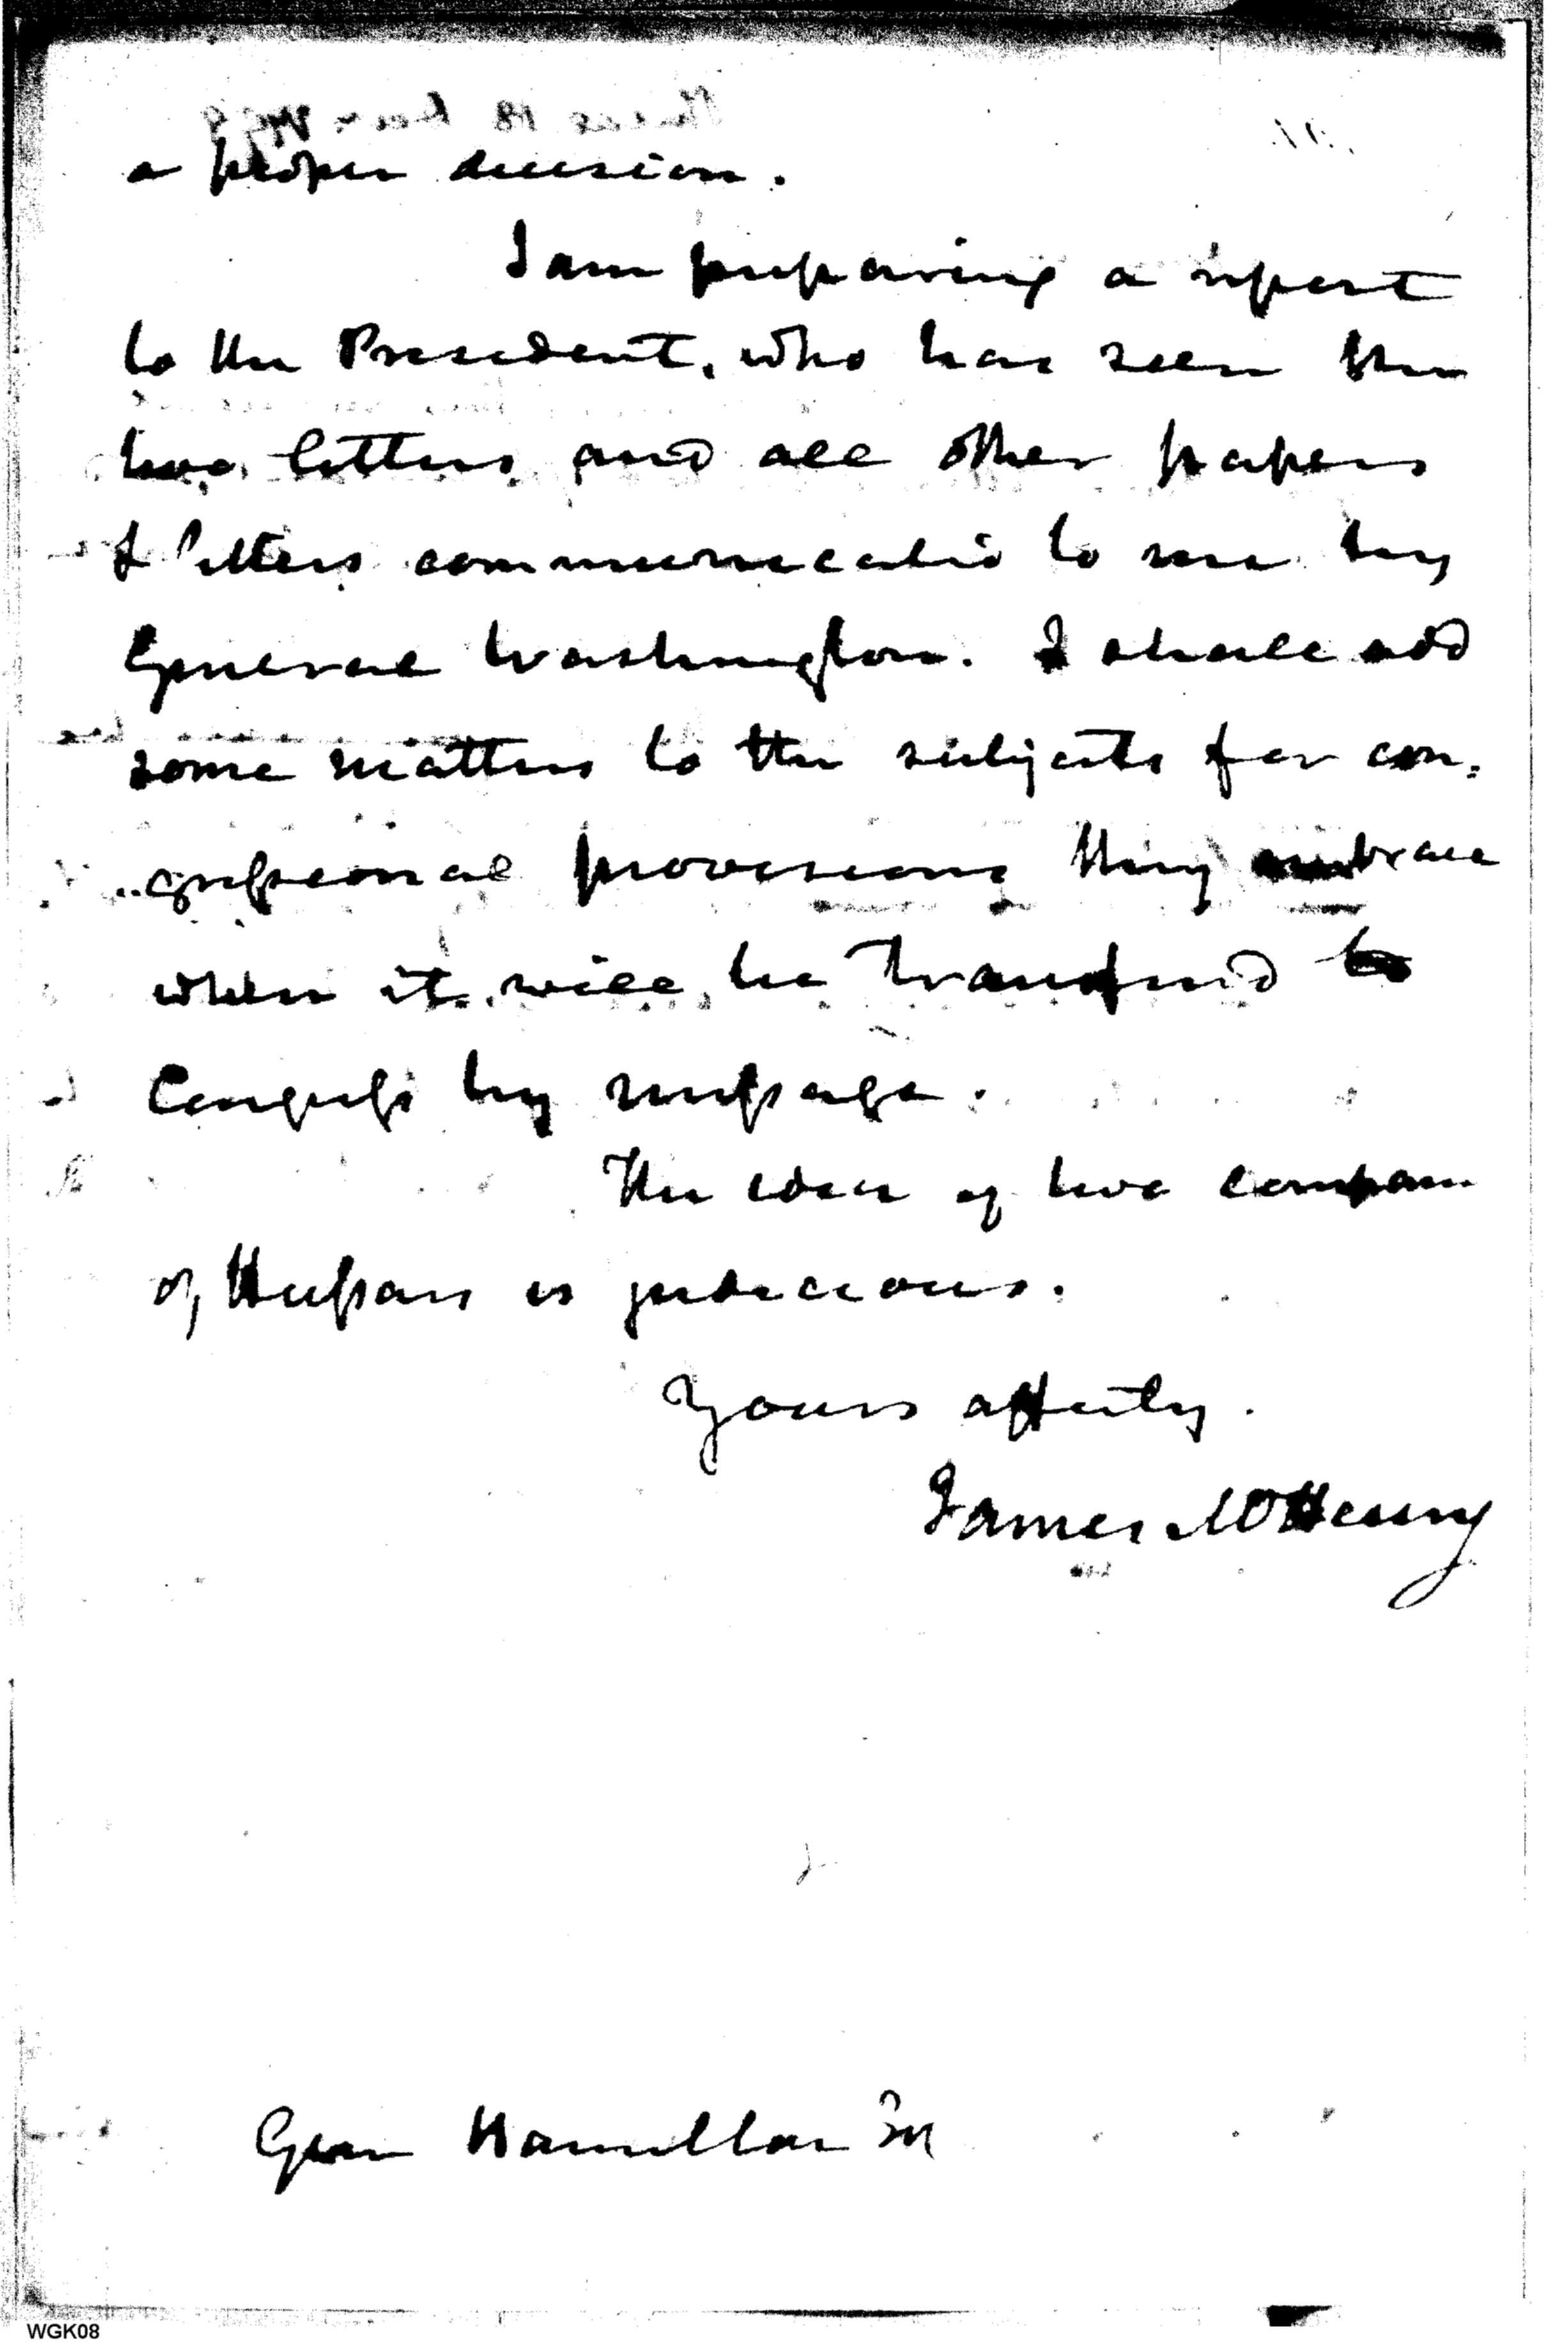 a proper decision.
I am preparing a report
to the President, who has seen the
two letters and all other papers
& letters communicated to me by
General Washington. I shall add
some matters to the subjects for con=
gressional provisions they embrace
when it will be transfered to
Congress by message.
The idea of two compan
of Hussars is judicious.
Yours affectly.
James McHenry
Gen Hamilton
WGK08